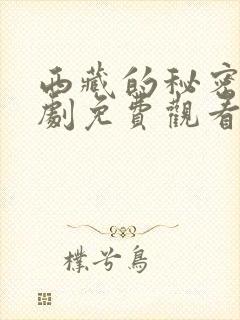 西藏的秘密
劇免費觀看
樸兮鳥